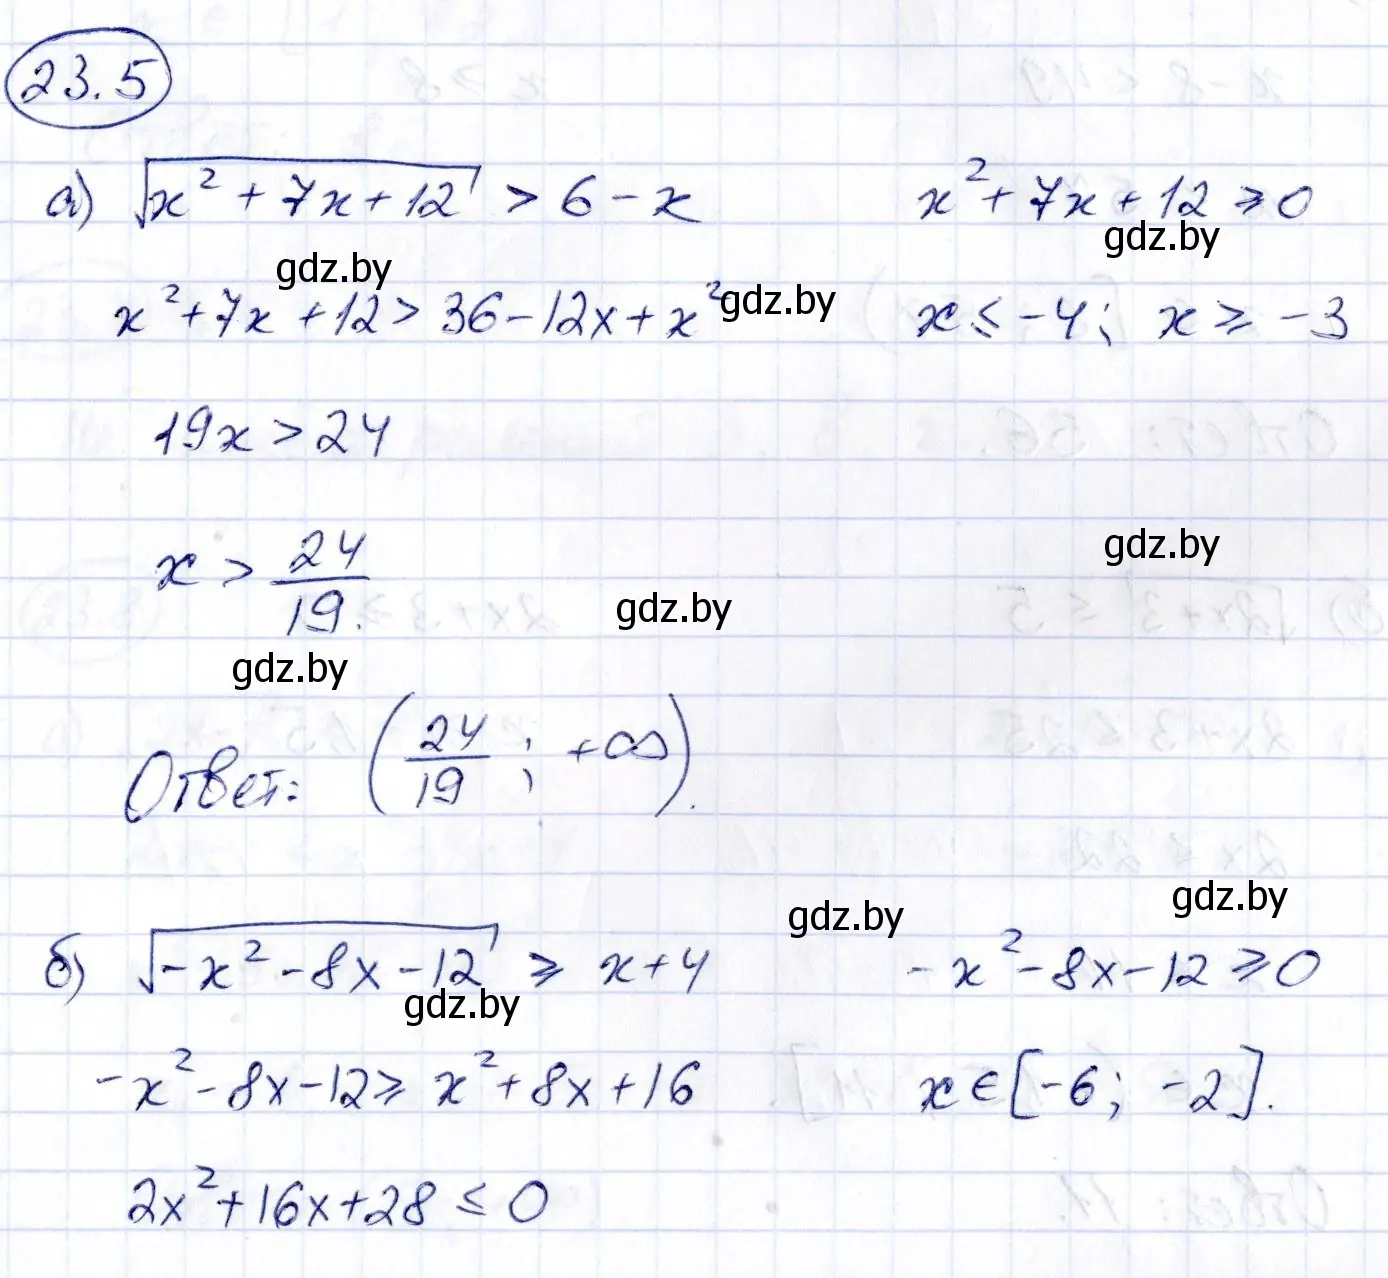 23.5
а) √(x² + 7x + 12) > 6 - x    x² + 7x + 12 ≥ 0
gdz.by    gdz.by
x² + 7x + 12 > 36 - 12x + x²    x ≤ -4; x ≥ -3
gdz.by
19x > 24
x > 24/19.
gdz.by
gdz.by
gdz.by
Ответ: (24/19; +∞).
gdz.by    gdz.by
б) √(-x² - 8x - 12) ≥ x + 4    -x² - 8x - 12 ≥ 0
gdz.by
-x² - 8x - 12 ≥ x² + 8x + 16    x ∈ [-6; -2].
2x² + 16x + 28 ≤ 0